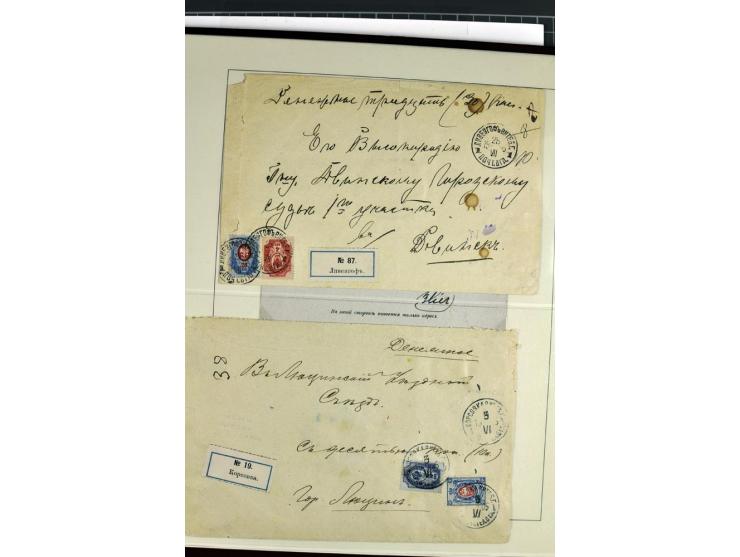 Денежное тридцать (30) коп.
Его Высокородію
Гну. Двинскому Городскому
судьѣ 1го участка
въ
Двинскъ.
№ 87.
Ливенгофъ.
На этой сторонѣ пишется только адресъ.
Денежное
38
Въ Люцинскій Уѣздной
Съѣздъ.
Съ десятью коп. (10к.)
№ 19.
Корсовка.
Гор. Люцинъ.